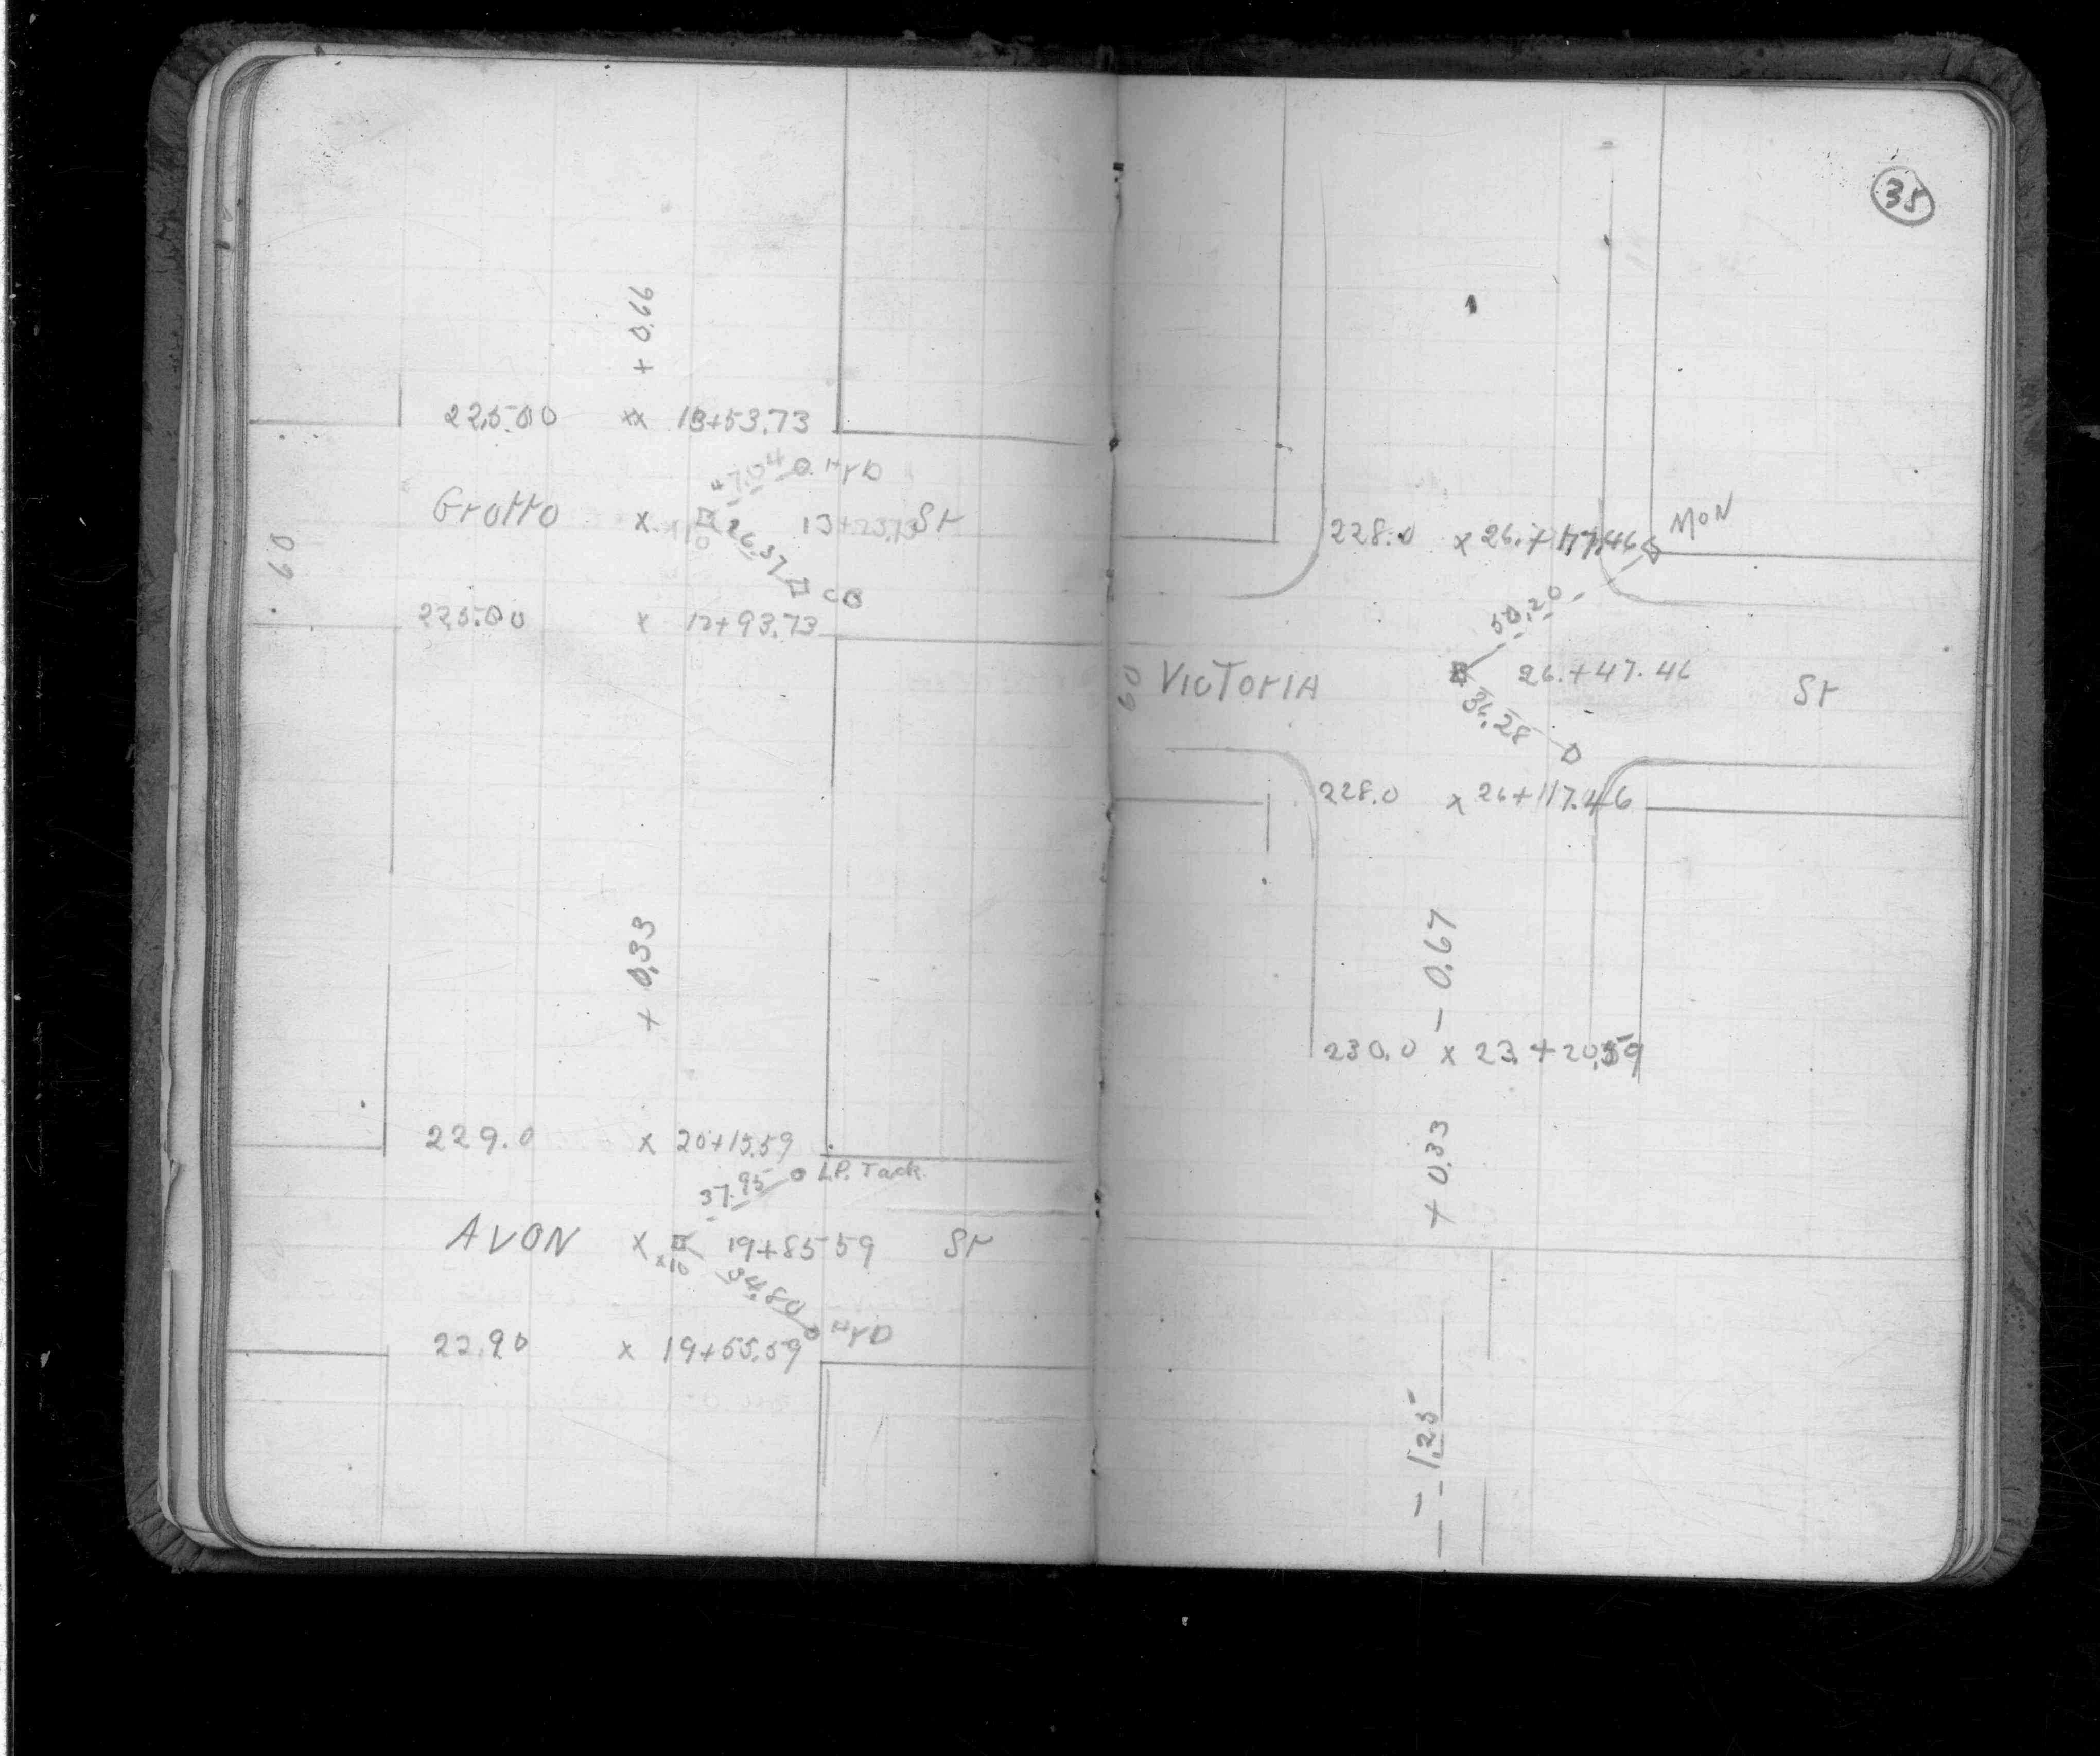 + 0.66
225.00 xx 13+53.73
47.04 HYD
Grotto x x10 13+23.73 St
26.37
CB
60
225.00 x 12+93.73
+ 0.33
229.0 x 20+15.59
37.95 L.P. Tack
AVON x x10 19+85.59 St
34.80
HYD
22.90 x 19+55.59
35
MON
228.0 x 26.+77.46
50.20
60 VICTORIA 26.+47.46 St
36.28
228.0 x 26+117.46
- 0.67
230.0 x 23.+20.59
+ 0.33
- 1.25